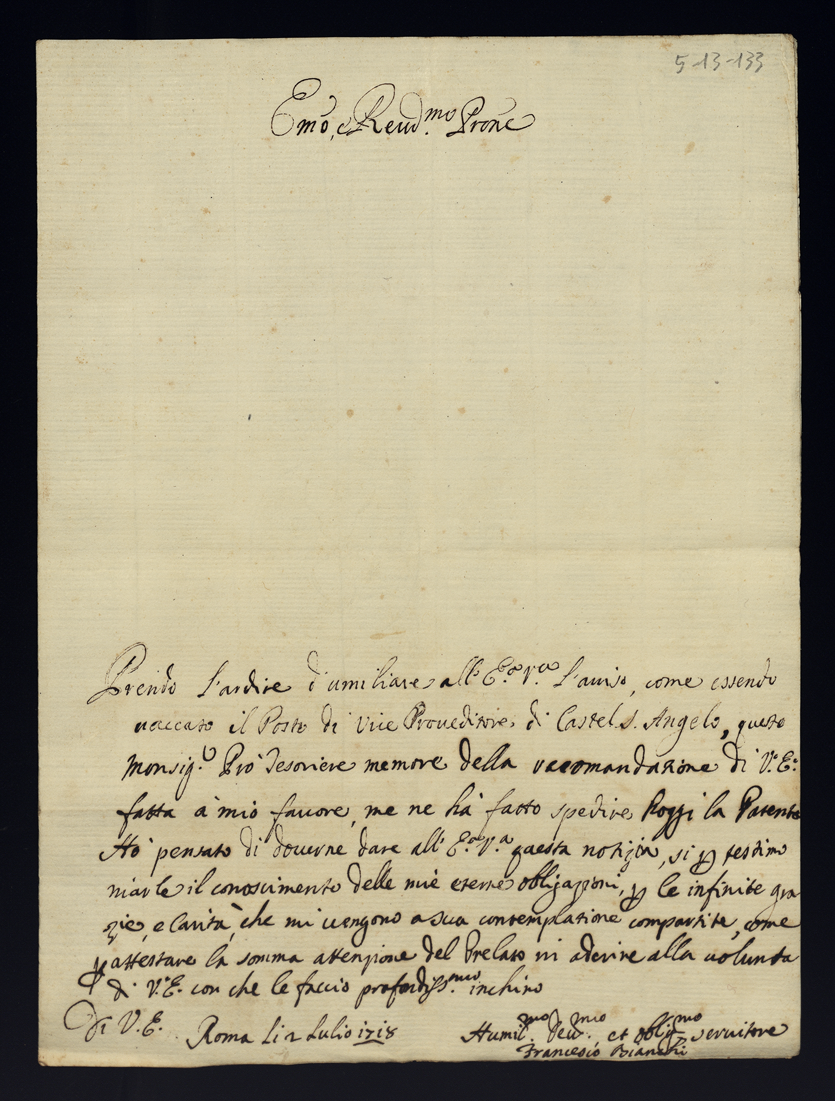 5-13-133
Emo, e Reud.mo Prone
Prendo l'ardire d'umiliare all'E.a V.a l'auuiso, come essendo
uaccato il Posto di Vice Proueditore di Castel S. Angelo, questo
Monsig.r Prò Tesoriere memore della racomandazione di V.E.
fatta à mio fauore, me ne hà fatto spedire hoggi la Patente
Hò pensato di douerne dare all'E.a V.a questa notizia, si p testimo
niarle il conoscimento delle mie eterne obligazioni, p le infinite gra
zie, e Carità, che mi uengono a sua contemplazione compartite, come
p attestare la somma attenzione del Prelato in aderire alla uolunta
di V.E. con che le faccio profondiss.mo inchino
Di V.E. Roma li 2 Lulio 1718 Humil.mo Deu.mo et oblig.mo seruitore
Francesco Bianchi